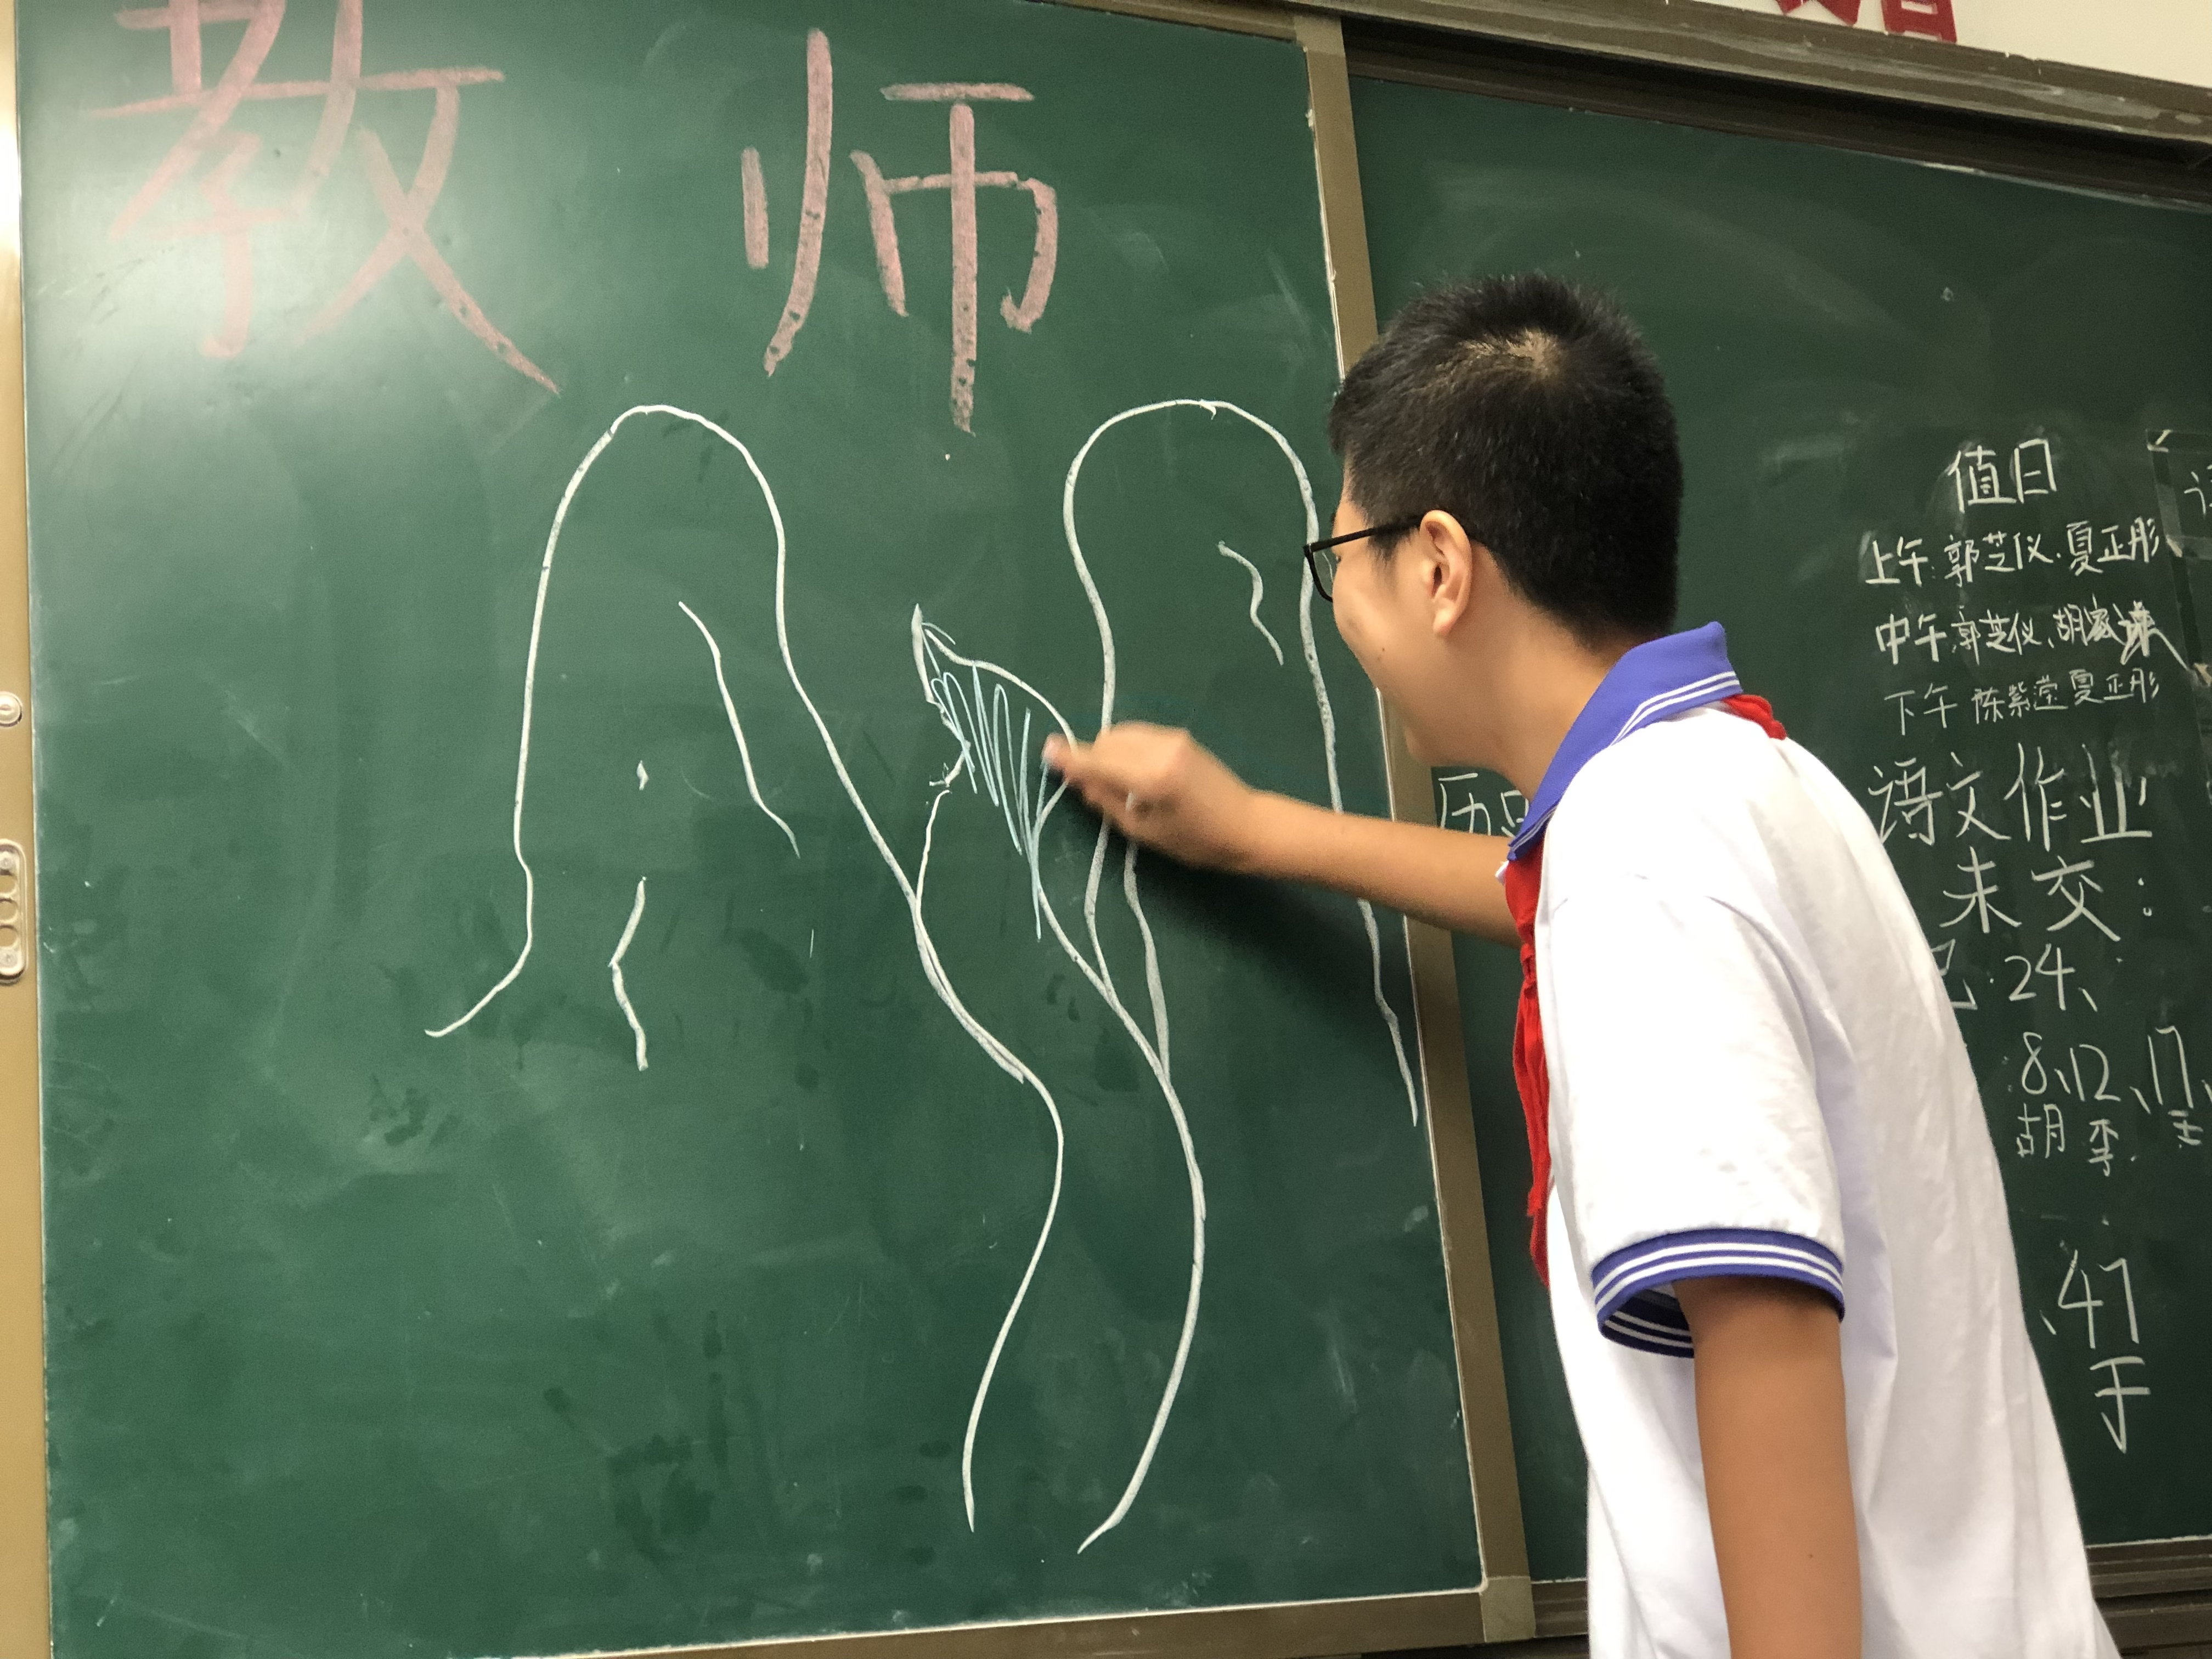 教师
值日
上午:郭芝仪.夏正彤
中午郭芝仪、胡家
下午 陈紫莹夏正彤
历
语文作业
未交:
24、
8、12、17、
胡 李 王
、47
于